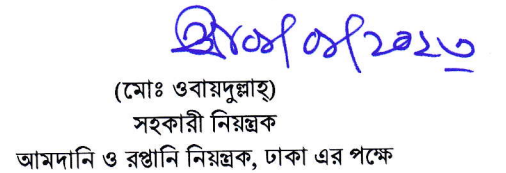 ০৫/০৫/২০২৩
(মোঃ ওবায়দুল্লাহ্)
সহকারী নিয়ন্ত্রক
আমদানি ও রপ্তানি নিয়ন্ত্রক, ঢাকা এর পক্ষে